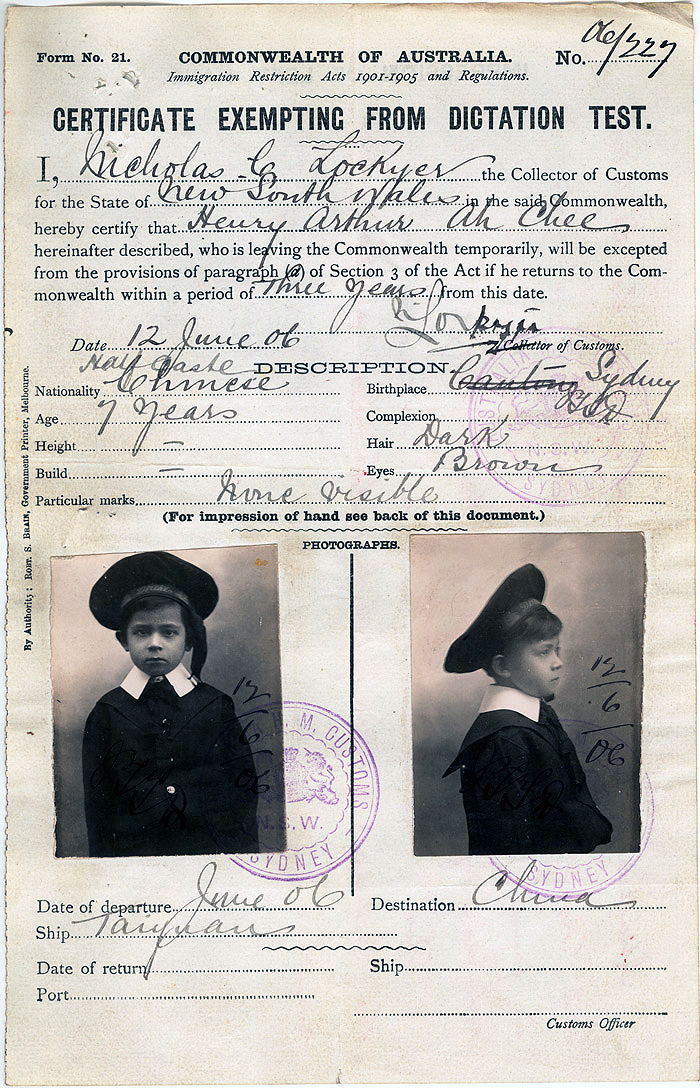 Form No. 21.
COMMONWEALTH OF AUSTRALIA.
No. 06/227
Immigration Restriction Acts 1901-1905 and Regulations.
CERTIFICATE EXEMPTING FROM DICTATION TEST.
I, Nicholas C. Lockyer the Collector of Customs
for the State of New South Wales in the said Commonwealth,
hereby certify that Henry Arthur Ah Chee
hereinafter described, who is leaving the Commonwealth temporarily, will be excepted
from the provisions of paragraph (a) of Section 3 of the Act if he returns to the Com-
monwealth within a period of Three Years from this date.
N Lockyer
Date 12 June 06
Collector of Customs.
Half Caste
DESCRIPTION.
Nationality Chinese
Birthplace Canton Sydney
Age 7 Years
Complexion
Height —
Hair Dark
Build —
Eyes Brown
Particular marks None visible
(For impression of hand see back of this document.)
PHOTOGRAPHS.
12/6/06
12/6/06
H. M. CUSTOMS
N.S.W.
SYDNEY
SYDNEY
N.S.W.
SYDNEY
Date of departure June 06
Destination China
Ship Taiyuan
Date of return
Ship
Port
Customs Officer
By Authority: ROBT. S. BRAIN, Government Printer, Melbourne.